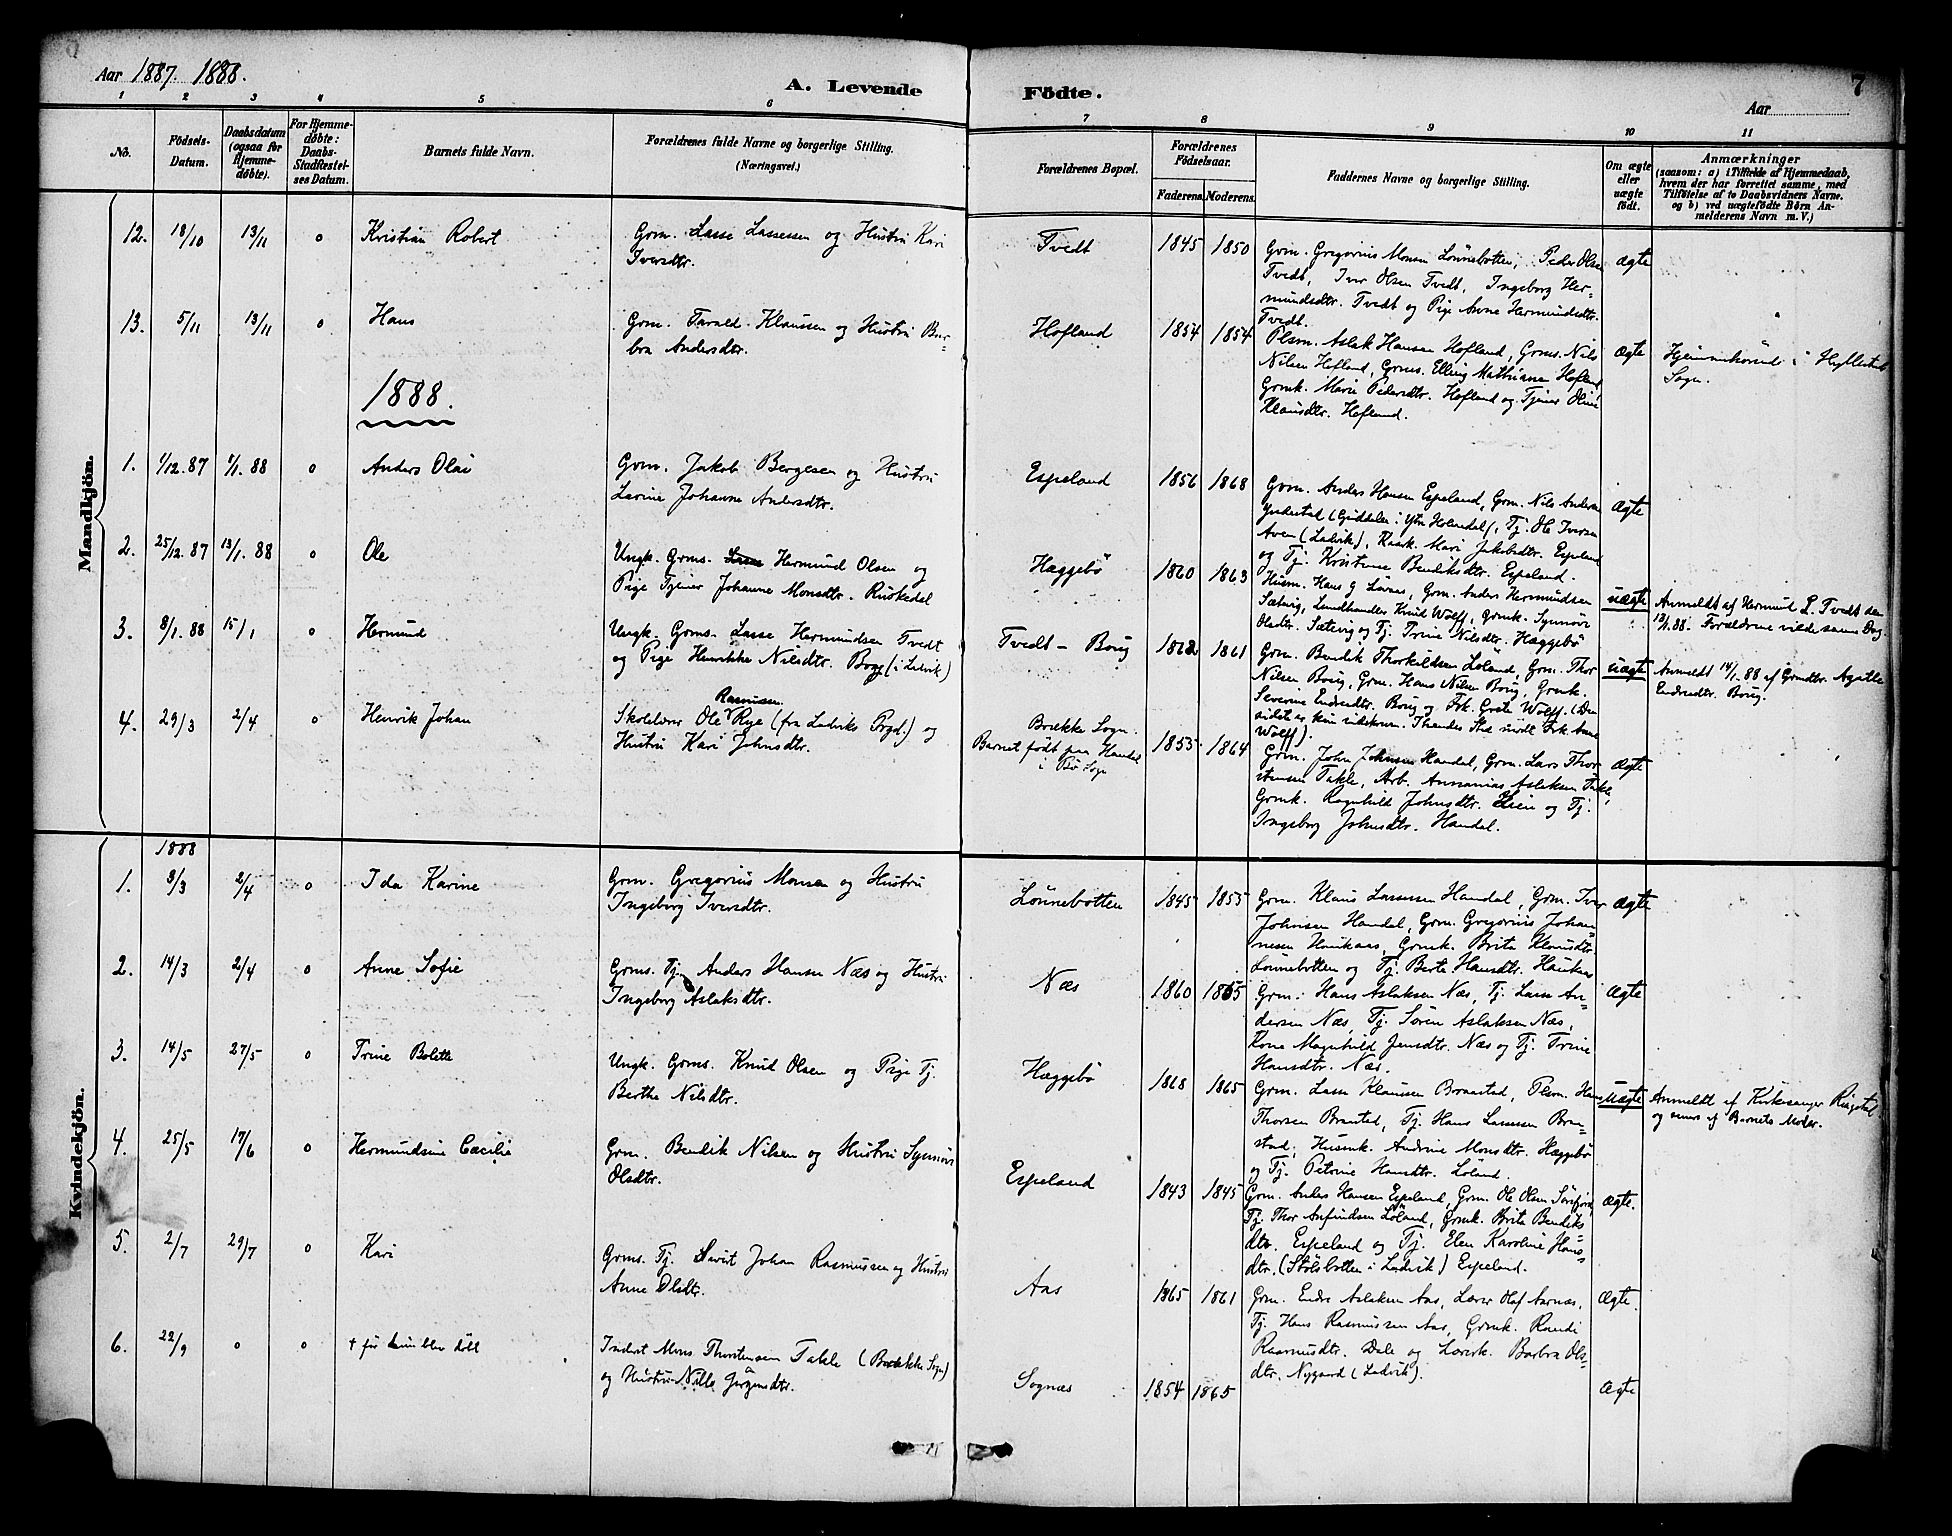 Aar 1887. 1888.
A. Levende Födte.
7
Aar
1 2 3 4 5 6 7 8 9 10 11
No.
Födsels-
Datum.
Daabsdatum
(ogsaa for
Hjemme-
døbte).
For Hjemme-
døbte:
Daabs-
Stadfæstel-
ses Datum.
Barnets fulde Navn.
Forældrenes fulde Navne og borgerlige Stilling.
(Næringsvei.)
Forældrenes Bopæl.
Forældrenes
Födselsaar.
Faderens. Moderens.
Faddernes Navne og borgerlige Stilling.
Om ægte
eller
uægte
født.
Anmærkninger
(saasom: a) i Tilfælde af Hjemmedaab,
hvem der har forrettet samme, med
Tilföielse af to Daabsvidners Navne.
og b) ved uægtefödte Börn An-
melderens Navn m. V.)
Mandkjön.
12. 18/10 13/11 o Kristian Robert
Grm. Lasse Lassesen og Hustru Kari
Iversdtr.
Tvedt 1845 1850
Grm. Gregorius Monsen Lönnebotten, Peder Olsen
Tvedt, Iver Olsen Tvedt, Ingeborg Her-
mundsdtr. Tvedt og Pige Anne Hermundsdtr.
Tvedt.
ægte
13. 5/11 13/11 o Hans
Grm. Tarald Klausen og Hustru Bar-
bra Andersdtr.
Hofland 1854 1854
Plsm. Aslak Hansen Hofland, Grms. Nils
Nilsen Hofland, Grms. Elling Mathiassen Hofland
Grmk. Marie Pedersdtr. Hofland og Tjener Oline
Klausdtr. Hofland.
ægte
Hjemmehörende i Hyllestad
Sogn.
1888.
1. 1/12. 87 1/1. 88 o Anders Olai
Grm. Jakob Børgesen og Hustru
Larine Johanne Andersdtr.
Espeland 1856 1868
Grm. Anders Hansen Espeland, Grm. Nils Andersen
Indrestad (Guddalen i Ytre Holmedal), Tj. Ole Iversen
Aven (Ladvik), Kaark. Mari Jakobsdtr. Espeland
og Tj. Kristense Bendiksdtr. Espeland.
Ægte
2. 25/12. 87 13/1. 88 o Ole
Ungk. Grms. Hermund Olsen og
Pige Tjener Johanne Monsdtr. Ruskedal
Hæggebö 1860 1863
Husm. Hans G Lönes, Grm. Anders Hermundsen
Sætevig, Landhandler Knud Wolff, Grmk. Synnöve
Olsdtr. Sætevig og Tj. Trine Nilsdtr. Hæggebö
uægte
Anmeldt af Hermund L. Tvedt den
13/1.88. Forældrene viede samme Dag
3. 8/1. 88 15/1 o Hermund
Ungk. Grms. Lasse Hermundsen Tvedt
og Pige Henrikke Nilsdtr. Borg (i Ladvik)
Tvedt - Borig 1862 1861
Grm. Bendik Thorkildsen Löland, Grm. Thor
Nilsen Borig, Grm. Hans Nilsen Borig, Grmk.
Severine Endresdtr. Borig og Frk. Grete Wolff. (Den
sidste er kun vidskrm. I hendes Sted mødte Frk. Anne
Wolff).
uægte
Anmeldt 14/1 88 af Grmdtr. Agatha
Endresdtr. Borig.
4. 29/3 2/4 o Henrik Johan
Skolelærer Ole Rasmussen Rye (fra Ladviks Prgd.) og
Hustru Kari Johnsdtr.
Brække Sogn.
Barnet født paa Handal
i Bö Sogn
1855 1864
Grm. John Johnsen Handal, Grm. Lars Thor-
stensen Takle, Arb. Annanias Aslaksen Takle,
Grmk. Ragnhild Johnsdtr. og Tj.
Ingeborg Johnsdtr. Handal.
Ægte
Kvindekjön.
1888
1. 3/3 2/4 o Ida Karine
Grm. Gregorius Monsen og Hustru
Ingeborg Iversdtr.
Lönnebotten 1845 1855
Grm. Klaus Lassesen Handal, Grm. Iver
Johnsen Handal, Grm. Gregorius Johan-
nesen Haukaas, Grmk. Brita Klausdtr.
Lönnebotten og Tj. Berte Hansdtr. Haukaas
Ægte
2. 14/3 2/4 o Anne Sofie
Grms. Tj. Anders Hansen Næs og Hustru
Ingeborg Aslaksdtr.
Næs 1860 1865
Grm. Hans Aslaksen Næs, Tj. Lasse An-
dersen Næs, Tj. Sören Aslaksen Næs,
Kone Magnhild Jensdtr. Næs og Tj. Trine
Hansdtr. Næs.
Ægte
3. 14/5 27/5 o Trine Bolette
Ungk. Grms. Knud Olsen og Pige Tj.
Berthe Nilsdtr.
Hæggebö 1868 1865
Grm. Lasse Klausen Braastad, Plsm. Hans
Thorsen Brastad, Tj. Hans Lassesen Bra-
stad, Husmk. Andrine Monsdtr. Hæggebö
og Tj. Petrine Hansdtr. Löland.
Uægte
Anmeldt af Kirkesanger Ringstad
og senere af Barnets Moder.
4. 25/5 17/6 o Hermundsine Cæcilie
Grm. Bendik Nilsen og Hustru Synnöve
Olsdtr.
Espeland 1843 1845
Grm. Anders Hansen Espeland, Grm. Ole Olsen Sörefjord,
Tj. Thor Anfindsen Löland, Grmk. Brita Bendiks
dtr. Espeland og Tj. Elen Karoline Hans
dtr. (Stölsbotten i Ladvik) Espeland.
Ægte.
5. 2/7 29/7 o Kari
Grms. Tj. Sivert Johan Rasmussen og Hustru
Anne Olsdtr.
Aas 1865 1861
Grm. Endre Aslaksen Aas, Lærer Olaf Aarnæs,
Tj. Hans Rasmussen Aas, Grmk. Randi
Rasmusdtr. Dale og Lærerk. Barbra Ols-
dtr. Nygaard (Ladvik).
Ægte.
6. 22/9 o o † før hun blev döbt
Inderst Mons Thorstensen Takle (Brække Sogn)
og Hustru Nille Jörgensdtr.
Sognæs 1854 1865
Ægte